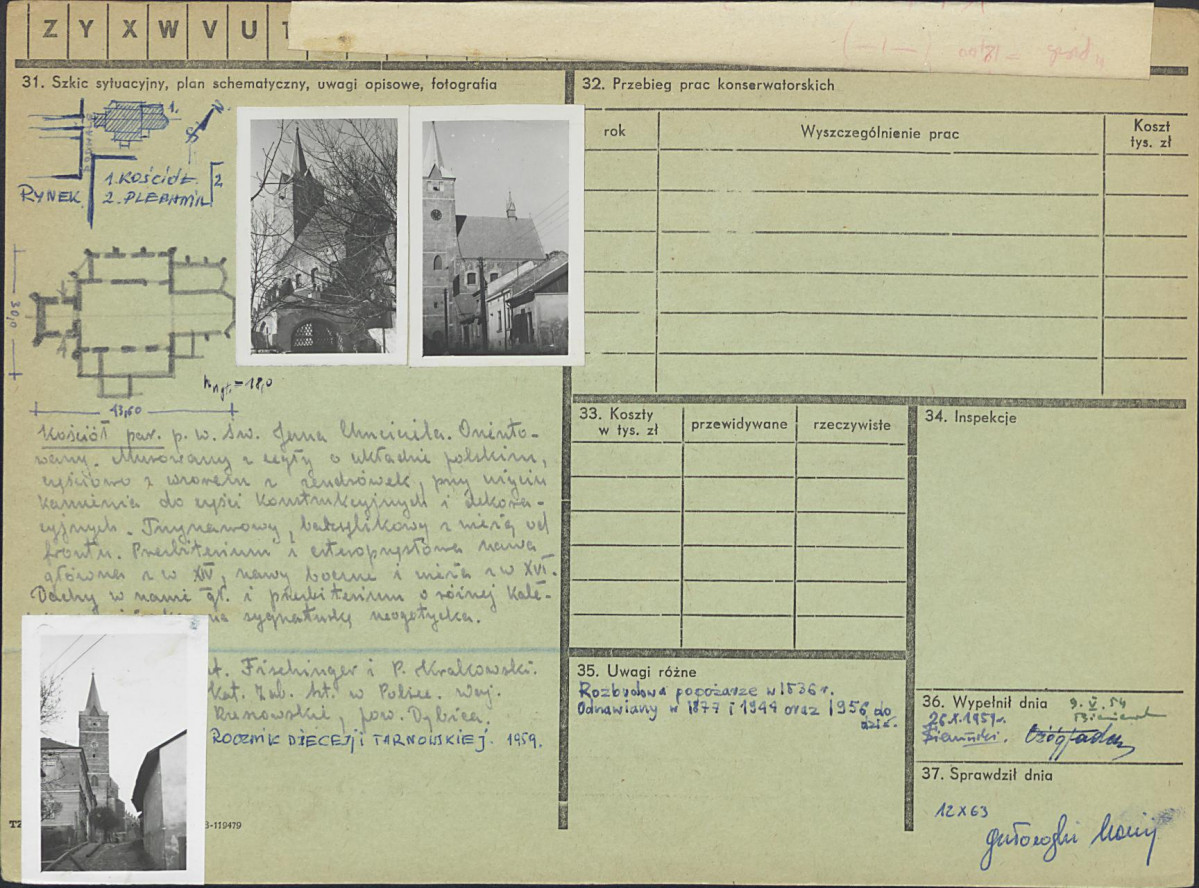 Z Y X W V U T
31. Szkic sytuacyjny, plan schematyczny, uwagi opisowe, fotografia
1.
N.
RYNEK
1. KOŚCIÓŁ
2. PLEBANIA
2
30,0
13,60
h ngł. = 18,0
Kościół par. p. w. św. Jana Chrzciciela. Oriento-
wany. Murowany z cegły o układzie polskim,
częściowo z wzorem z zendrówek, przy użyciu
kamienia do części konstrukcyjnych i dekora-
cyjnych. Trzynawowy, bazylikowy z wieżą od
frontu. Prezbiterium i czteroprzęsłowa nawa
główna z w XIV, nawy boczne i wieża z w XVI.
Dachy w nawie gł. i prezbiterium o różnej kale-
na sygnaturkę neogotycka.
t. Fischinger i P. Krakowski.
Kat. Zab. Szt. w Polsce. Woj.
Rzeszowskie, pow. Dębica.
ROCZNIK DIECEZJI TARNOWSKIEJ. 1959.
-119479
32. Przebieg prac konserwatorskich
rok
Wyszczególnienie prac
Koszt
tys. zł
33. Koszty
w tys. zł
przewidywane
rzeczywiste
34. Inspekcje
35. Uwagi różne
Rozbudowa po pożarze w 1836 r.
Odnawiany w 1877 i 1944 oraz 1956 do
dziś.
36. Wypełnił dnia
9. V. 54
26.X.1959r.
37. Sprawdził dnia
12 X 63